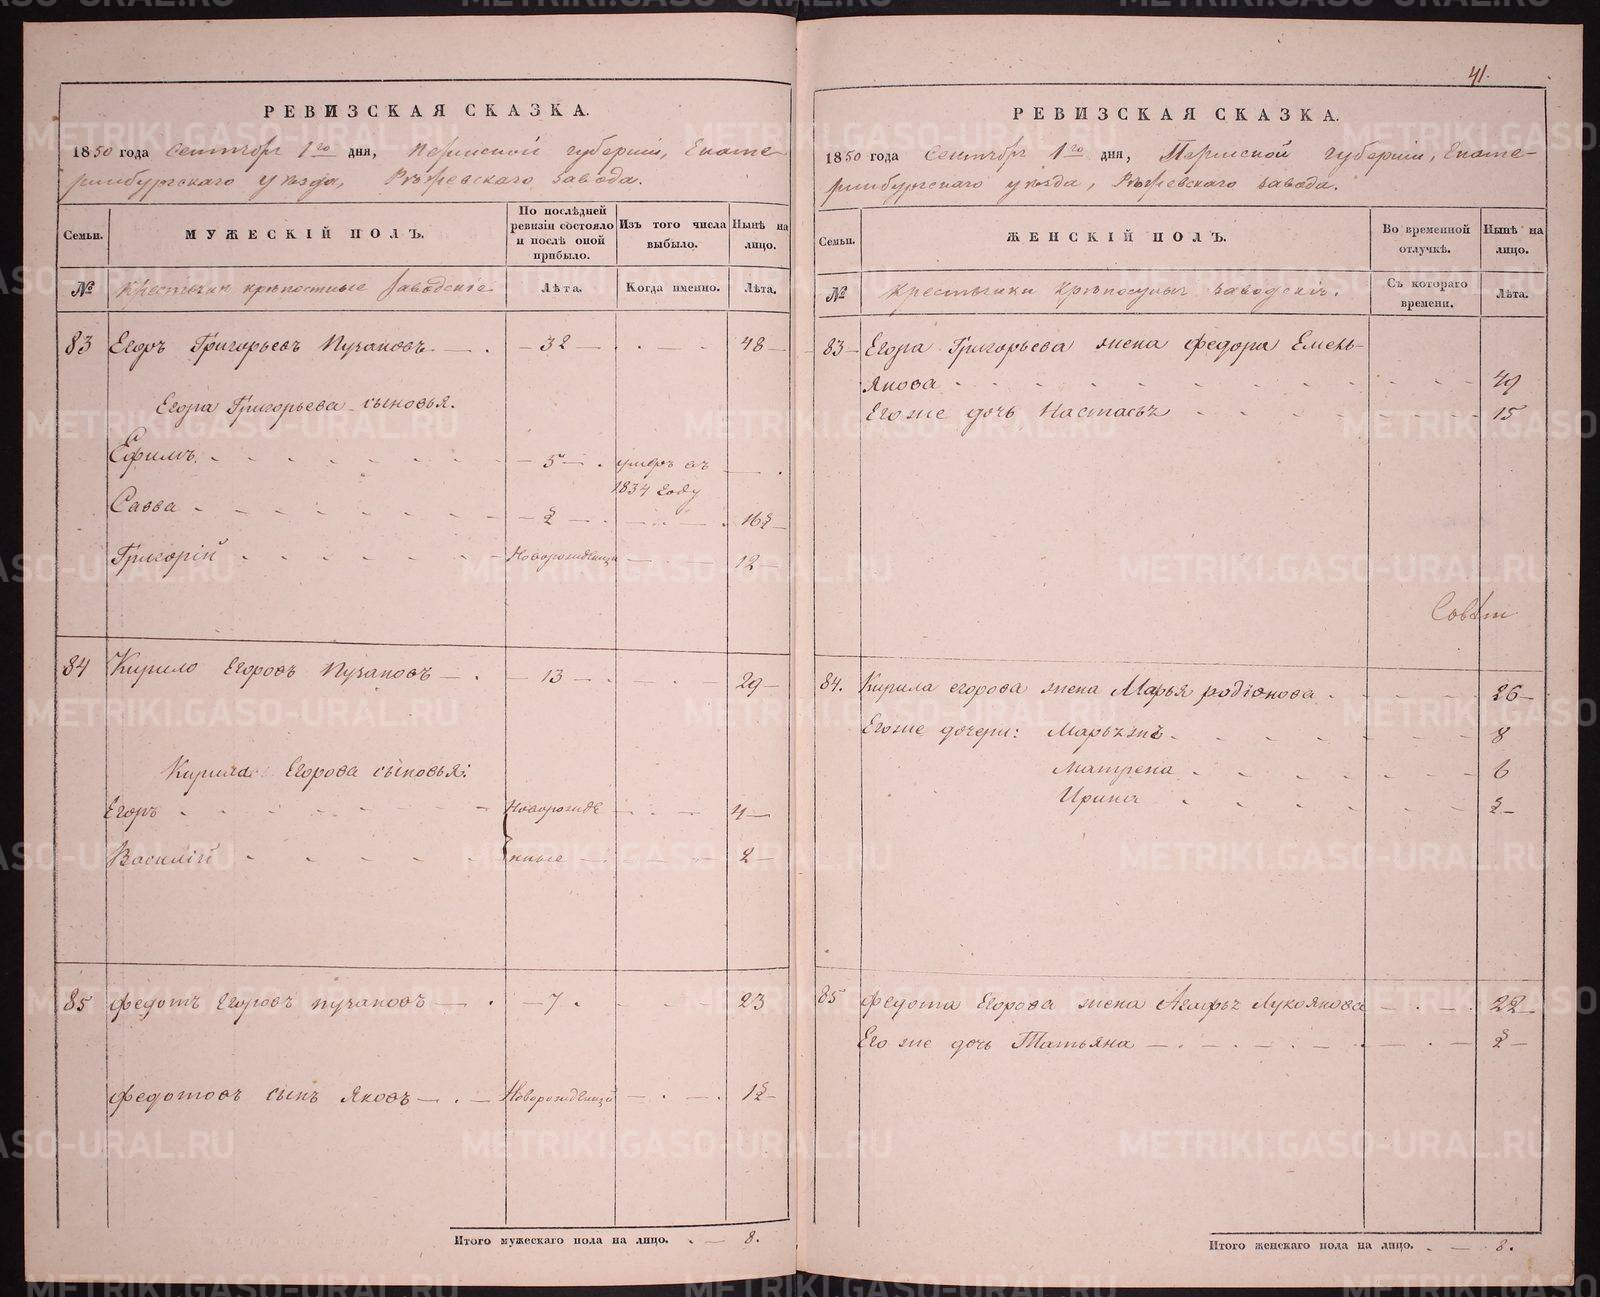 РЕВИЗСКАЯ СКАЗКА.
1850 года Сентября 1го дня, Пермской губернiи, Екате-
ринбургскаго уѣзда, Рѣжевскаго завода.
Семьи.
МУЖЕСКIЙ ПОЛЪ.
По послѣдней
ревизiи состояло
и послѣ оной
прибыло.
Изъ того числа
выбыло.
Нынѣ на
лицо.
№
Крестьяне крѣпостные Заводскiе
Лѣта.
Когда именно.
Лѣта.
83 Егоръ Григорьевъ Пучановъ 32 48
Егора Григорьева сыновья.
Ефимъ 5 умеръ въ
1834 году
Савва ½ 16½
Григорiй Новорожденный 12
84 Кирило Егоровъ Пучановъ 13 29
Кирила Егорова сыновья:
Егоръ Новорожде 4
Василiй нные 2
85 Федотъ Егоровъ Пучановъ 7 23
Федотовъ сынъ Яковъ Новорожденный 1½
Итого мужескаго пола на лицо. 8.
41.
РЕВИЗСКАЯ СКАЗКА.
1850 года Сентября 1го дня, Пермской губернiи, Екате-
ринбургскаго уѣзда, Рѣжевскаго завода.
Семьи.
ЖЕНСКIЙ ПОЛЪ.
Во временной
отлучкѣ.
Нынѣ на
лицо.
№
Крестьянки Крѣпостныя Заводскiя.
Съ котораго
времени.
Лѣта.
83 Егора Григорьева жена Федора Емель-
янова 49
Его же дочь Настасья 15
84. Кирила Егорова жена Марья Родiонова 26
Егоже дочери: Марьяжъ 8
Матрена 6
Ирина 2
85 Федота Егорова жена Агафья Лукоянова 22
Его же дочь Татьяна ½
Итого женскаго пола на лицо. 8.
METRIKI.GASO-URAL.RU